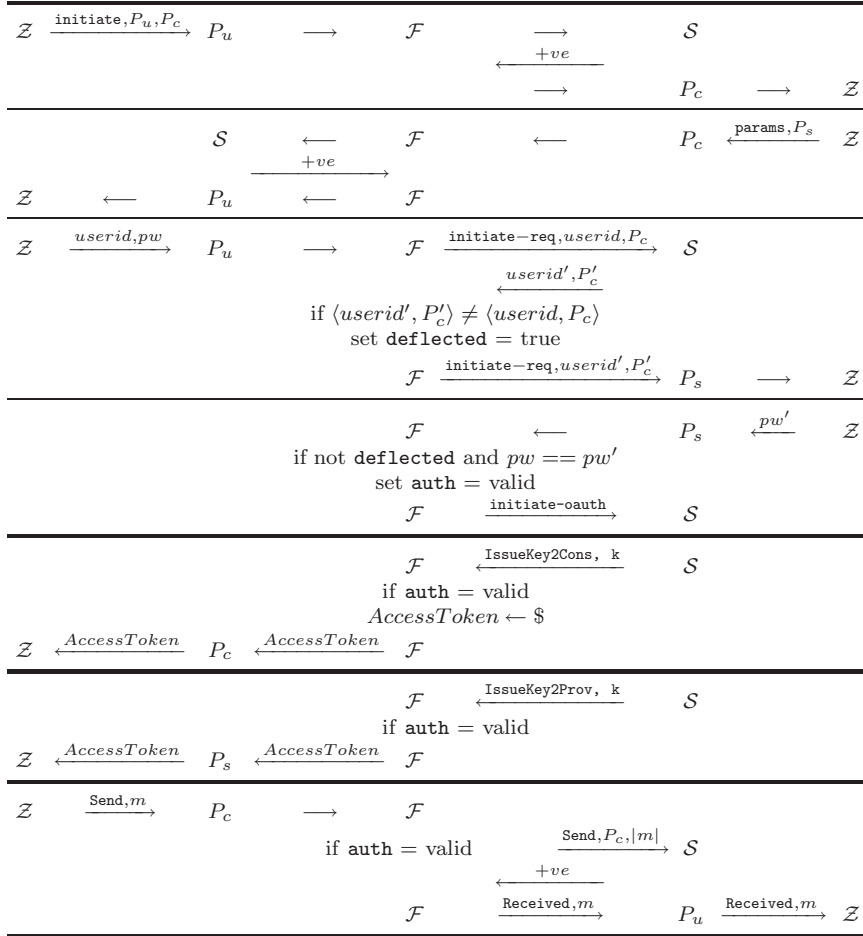 Z initiate,P_u,P_c → P_u → F → S
← +ve
→ P_c → Z
S ← F ← P_c ← params,P_s Z
+ve →
Z ← P_u ← F
Z userid,pw → P_u → F initiate−req,userid,P_c → S
← userid′,P′_c
if ⟨userid′, P′_c⟩ ≠ ⟨userid, P_c⟩
set deflected = true
F initiate−req,userid′,P′_c → P_s → Z
F ← P_s ← pw′ Z
if not deflected and pw == pw′
set auth = valid
F initiate-oauth → S
F ← IssueKey2Cons, k S
if auth = valid
AccessToken ← $
Z ← AccessToken P_c ← AccessToken F
F ← IssueKey2Prov, k S
if auth = valid
Z ← AccessToken P_s ← AccessToken F
Z Send,m → P_c → F
if auth = valid Send,P_c,|m| → S
← +ve
F Received,m → P_u Received,m → Z